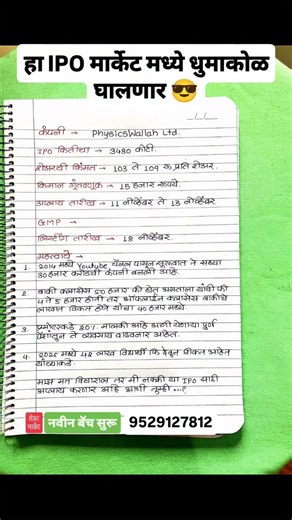 हा IPO मार्केट मध्ये धुमाकोळ
घालणार 😎
कंपनी → PhysicsWallah Ltd.
IPO कितीचा → 3480 कोटी.
शेअरची किंमत → 103 ते 109 रू प्रति शेअर.
किमान गुंतवणूक → 15 हजार रूपये.
अप्लाय तारीख → 11 नोव्हेंबर ते 13 नोव्हेंबर
GMP →
लिस्टींग तारीख → 18 नोव्हेंबर.
महत्वाचे
1. 2014 मध्ये Youtube चॅनल पासून सुरूवात ते सध्या
30 हजार करोडची कंपनी बनली आहे.
2. बाकी क्लासेस 50 हजार फी घेत असताना यांची फी
4 ते 5 हजार होती तर ऑफलाईन क्लासेस बाकीचे
लाखात विकत होते यांचा 40 हजार मध्ये.
3. प्रमोटरकडे 80% मालकी आहे आणी येणाऱ्या पूर्ण
पैशातून ते व्यवसाय वाढवणार आहेत.
4. 2025 मध्ये 45 लाख विद्यार्थी फि देवून शिकत आहेत
यांच्याकडे.
माझं मत विचाराल तर मी नक्की या IPO साठी
अप्लाय करणार आहे आणी तुम्ही...?
शेअर
मार्केट
नवीन बॅच सुरू
9529127812